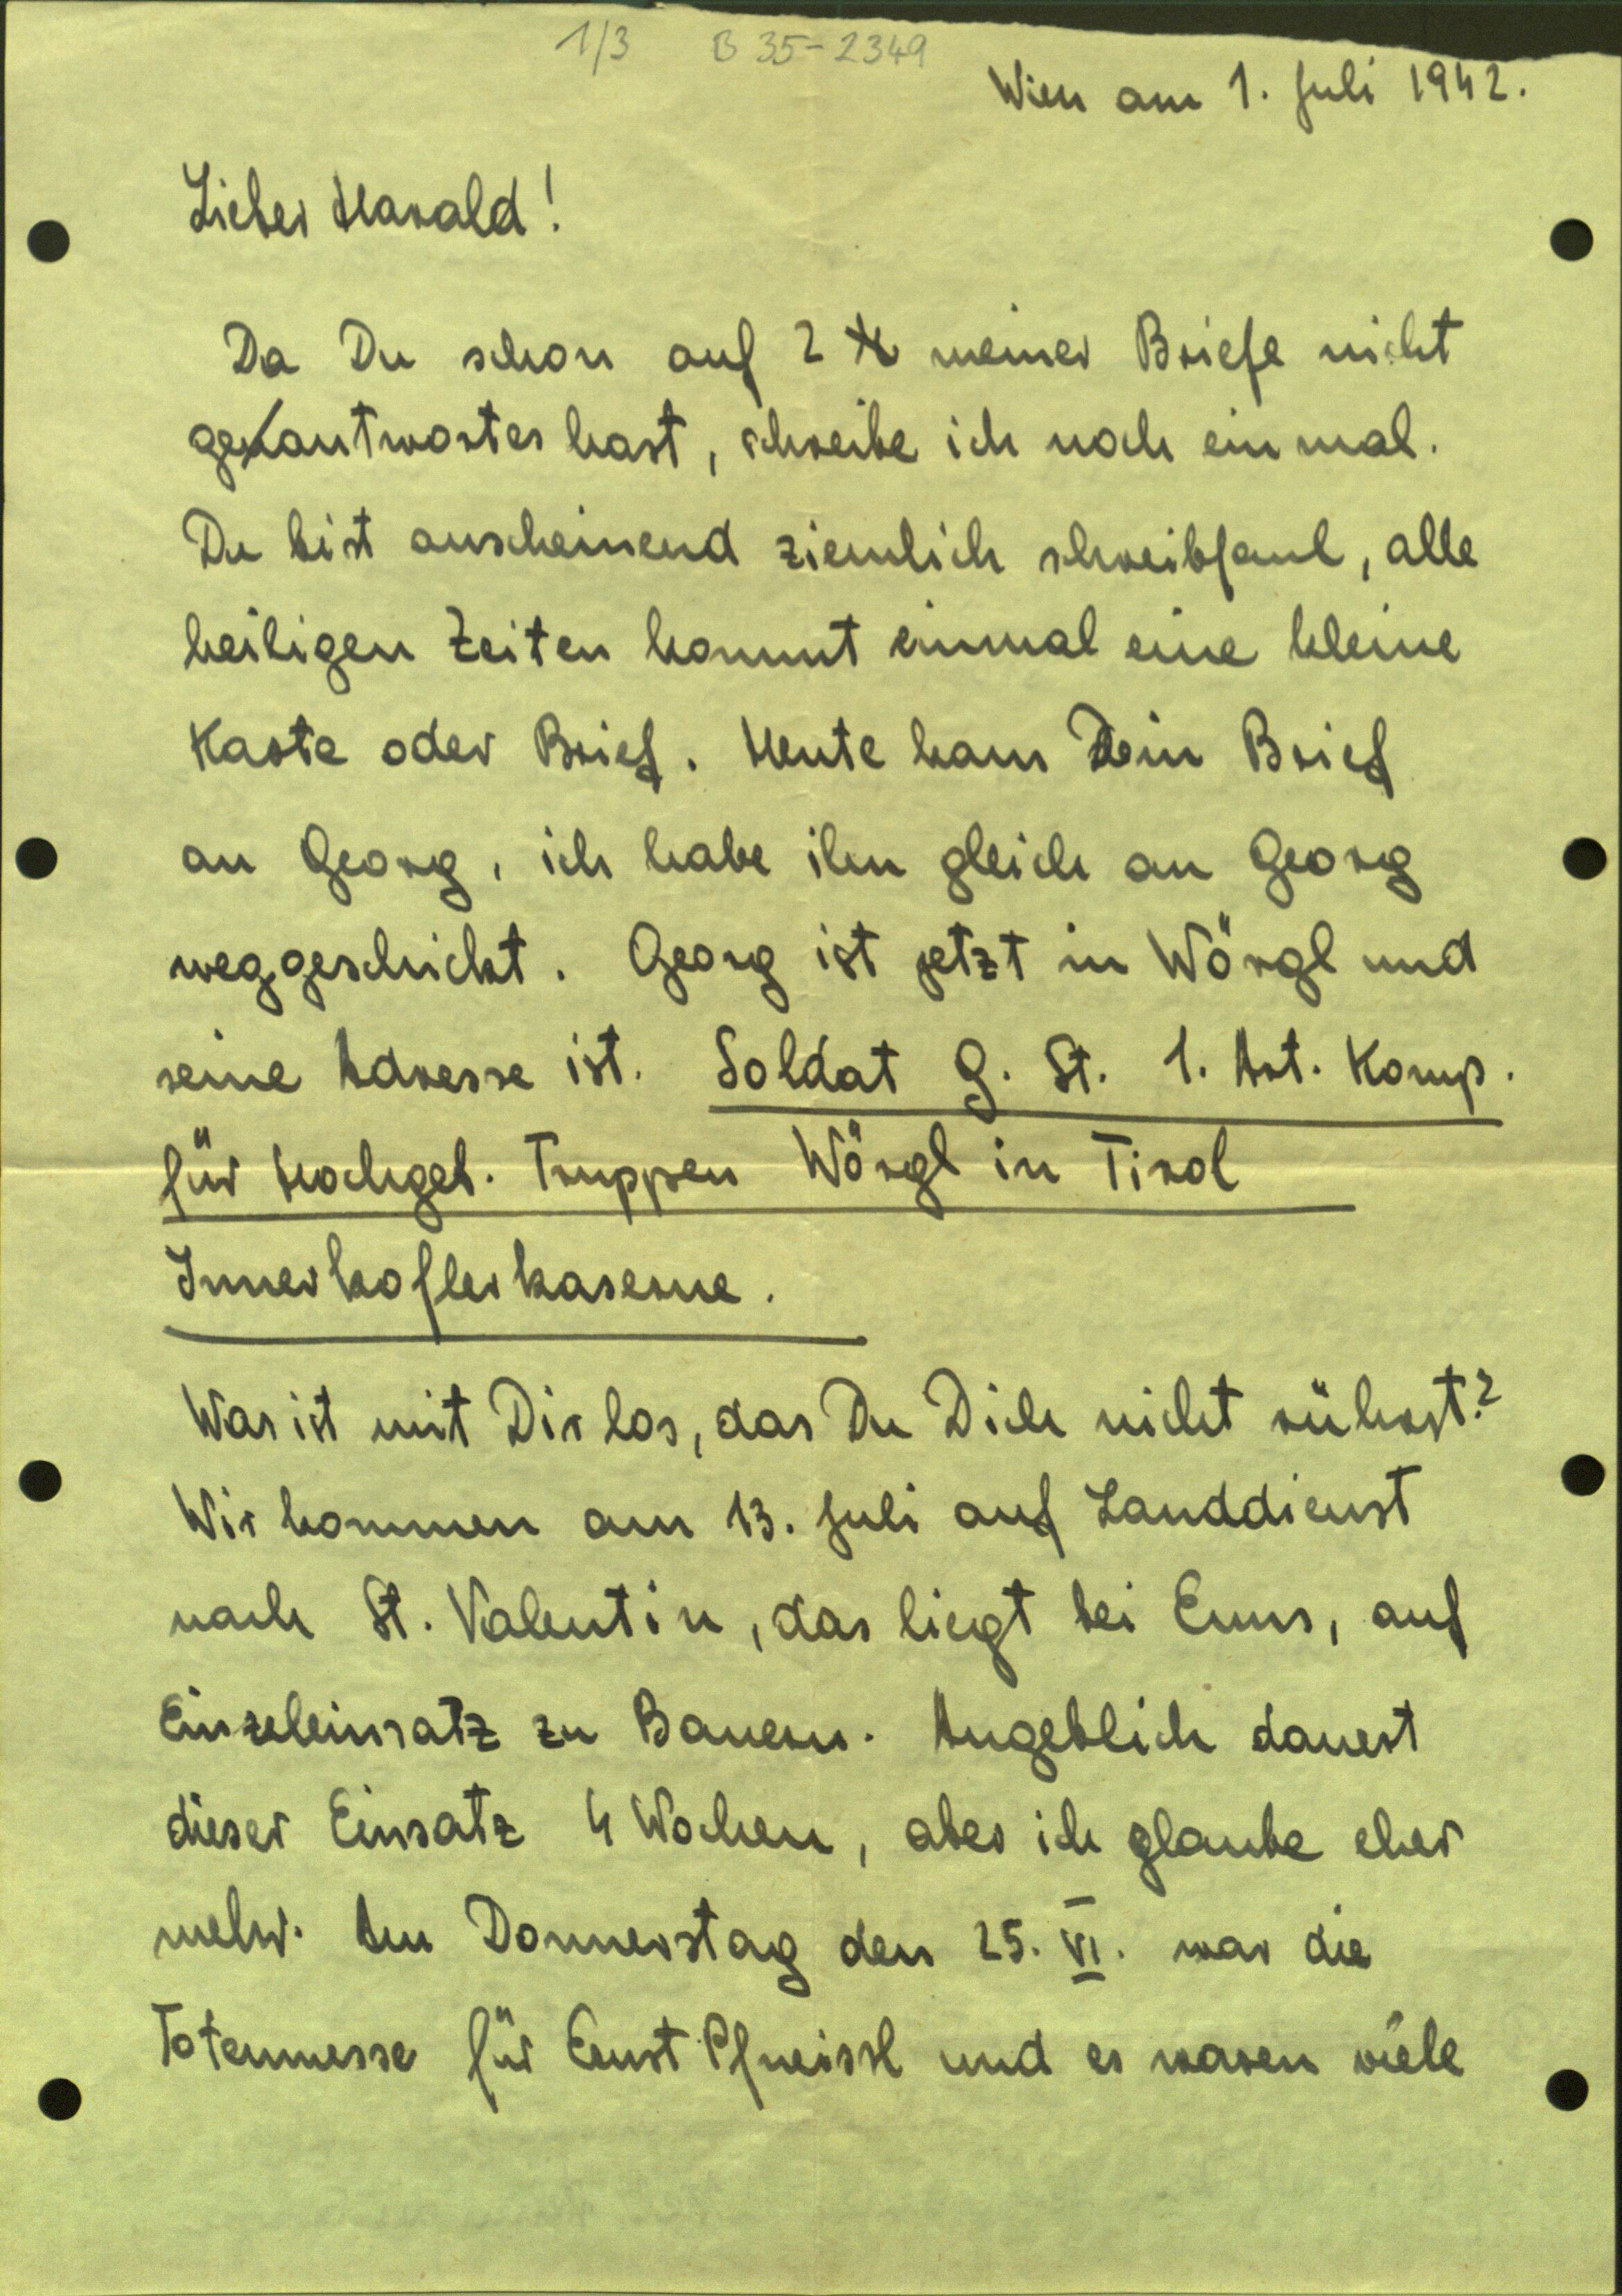 1/3 B 35-2349
Wien am 1. Juli 1942.
Lieber Harald!
Da Du schon auf 2 meiner Briefe nicht
geantwortet hast, schreibe ich noch ein mal.
Du bist anscheinend ziemlich schreibfaul, alle
heiligen Zeiten kommt einmal eine kleine
Karte oder Brief. Heute kam Dein Brief
an Georg, ich habe ihn gleich an Georg
weggeschickt. Georg ist jetzt in Wörgl und
seine Adresse ist. Soldat G. St. 1. Art. Komp.
für Hochgeb. Truppen Wörgl in Tirol
Innerkoflerkaserne.
Was ist mit Dir los, das Du Dich nicht rührst?
Wir kommen am 13. Juli auf Landdienst
nach St. Valentin, das liegt bei Enns, auf
Einzeleinsatz zu Bauern. Angeblich dauert
dieser Einsatz 4 Wochen, aber ich glaube eher
mehr. Am Donnerstag den 25. VI. war die
Totenmesse für Ernst Pfneissl und es waren viele